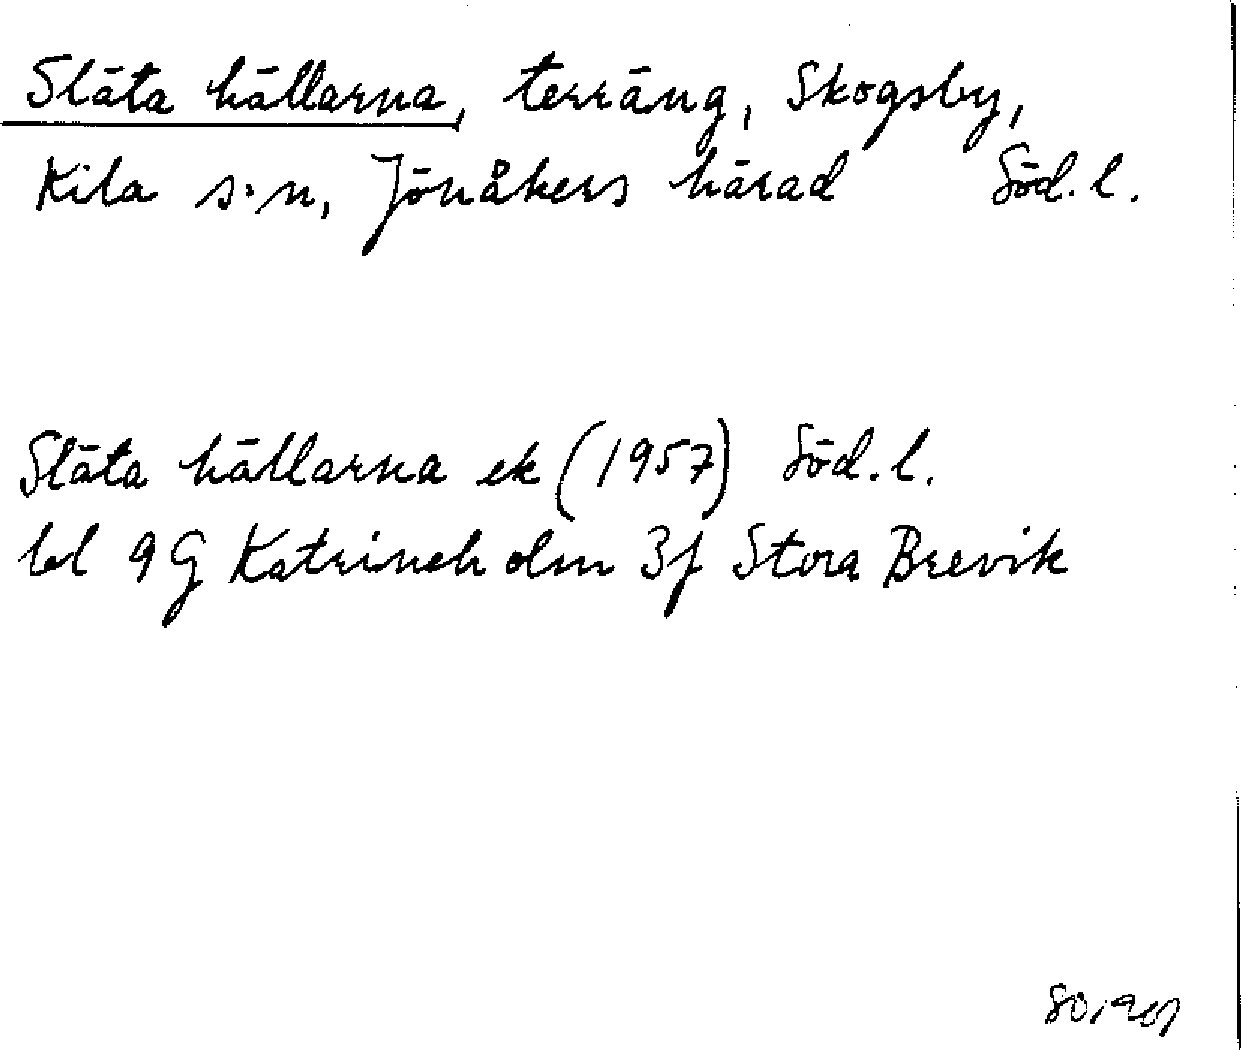 Släta hällarna, terräng, Skogsby,
Kila s:n, Jönåkers härad Söd. l.
Släta hällarna ek (1957) Söd. l.
bl 9G Katrineholm 3f Stora Brevik